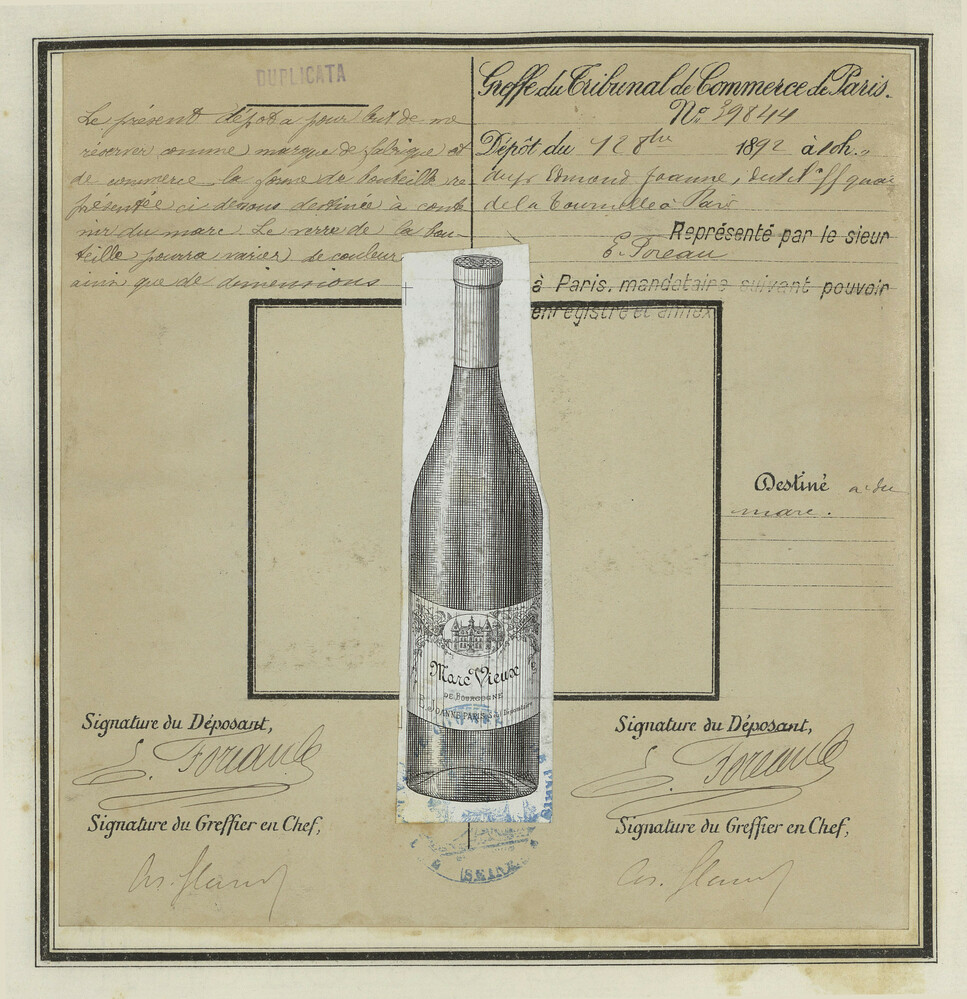 DUPLICATA
Le présent dépôt a pour but de me
réserver comme marque de fabrique et
de commerce la forme de bouteille re
présentée ci dessous destinée à conte
nir du marc. Le verre de la bou-
teille pourra varier de couleur
ainsi que de dimensions
Greffe du Tribunal de Commerce de Paris.
No. 39844
Dépôt du 12 8bre 1892 à 10h.
Edmond Joanne, quai
de la Tournelle à Paris
Représenté par le sieur
E. Foreau
à Paris, mandataire suivant pouvoir
enregistré et annexé
Destiné à du
marc.
Marc Vieux
DE BOURGOGNE
E. JOANNE PARIS
Signature du Déposant,
Signature du Greffier en Chef,
Signature du Déposant,
Signature du Greffier en Chef,
PARIS
(SEINE)